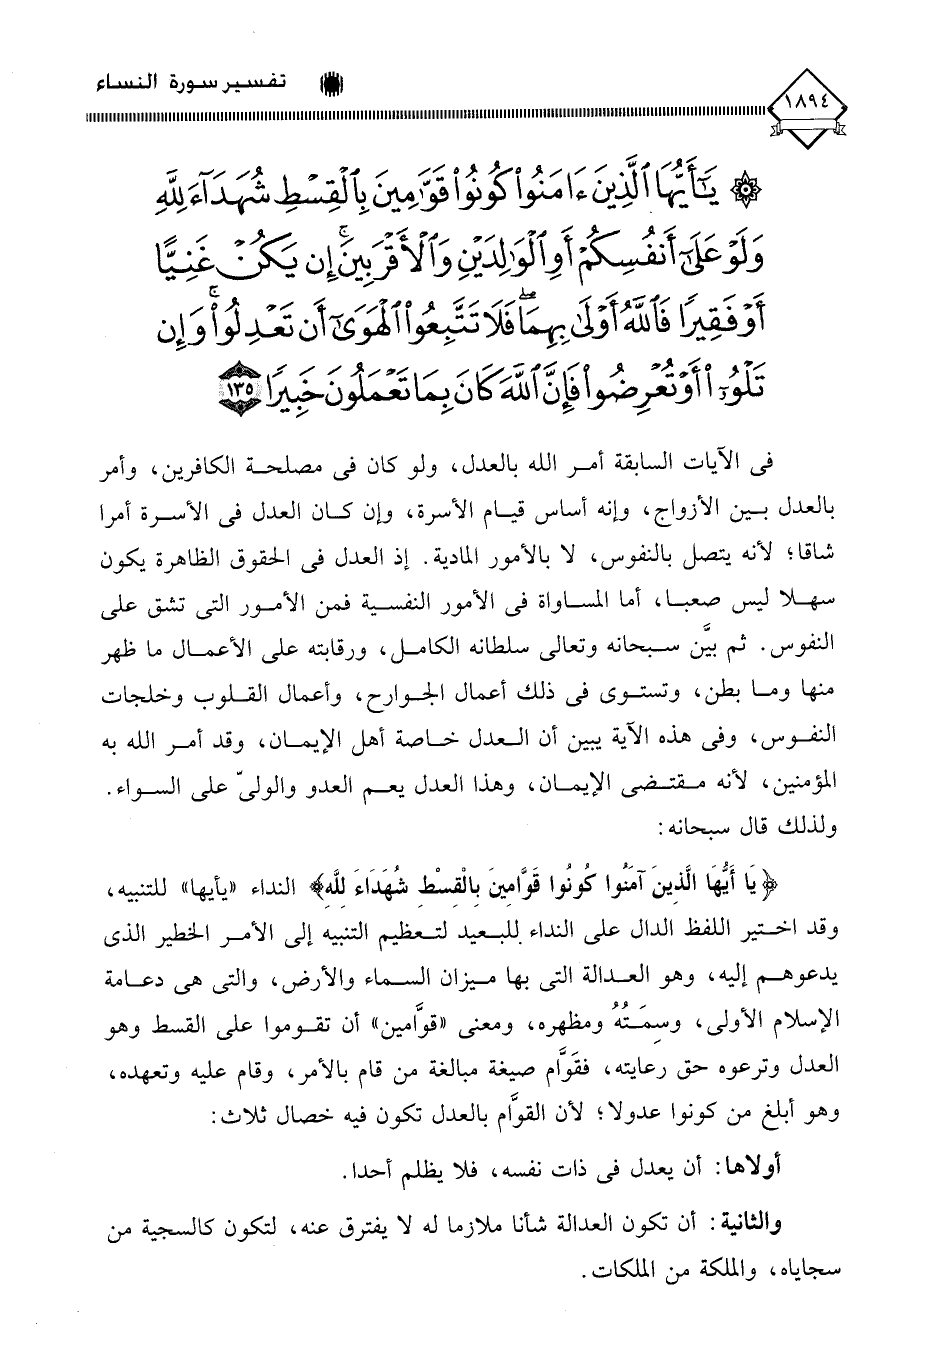 ١٨٩٤
تفسير سورة النساء
يَٰٓأَيُّهَا ٱلَّذِينَ ءَامَنُوا۟ كُونُوا۟ قَوَّٰمِينَ بِٱلْقِسْطِ شُهَدَآءَ لِلَّهِ
وَلَوْ عَلَىٰٓ أَنفُسِكُمْ أَوِ ٱلْوَٰلِدَيْنِ وَٱلْأَقْرَبِينَ ۚ إِن يَكُنْ غَنِيًّا
أَوْ فَقِيرًا فَٱللَّهُ أَوْلَىٰ بِهِمَا ۖ فَلَا تَتَّبِعُوا۟ ٱلْهَوَىٰٓ أَن تَعْدِلُوا۟ ۚ وَإِن
تَلْوُۥٓا۟ أَوْ تُعْرِضُوا۟ فَإِنَّ ٱللَّهَ كَانَ بِمَا تَعْمَلُونَ خَبِيرًا ١٣٥
فى الآيات السابقة أمر الله بالعدل، ولو كان فى مصلحة الكافرين، وأمر
بالعدل بين الأزواج، وإنه أساس قيام الأسرة، وإن كان العدل فى الأسرة أمرا
شاقا؛ لأنه يتصل بالنفوس، لا بالأمور المادية. إذ العدل فى الحقوق الظاهرة يكون
سهلا ليس صعبا، أما المساواة فى الأمور النفسية فمن الأمور التى تشق على
النفوس. ثم بيَّن سبحانه وتعالى سلطانه الكامل، ورقابته على الأعمال ما ظهر
منها وما بطن، وتستوى فى ذلك أعمال الجوارح، وأعمال القلوب وخلجات
النفوس، وفى هذه الآية يبين أن العدل خاصة أهل الإيمان، وقد أمر الله به
المؤمنين، لأنه مقتضى الإيمان، وهذا العدل يعم العدو والولىّ على السواء.
ولذلك قال سبحانه:
﴿يَا أَيُّهَا الَّذِينَ آمَنُوا كُونُوا قَوَّامِينَ بِالْقِسْطِ شُهَدَاءَ لِلَّهِ﴾ النداء «يأيها» للتنبيه،
وقد اختير اللفظ الدال على النداء للبعيد لتعظيم التنبيه إلى الأمر الخطير الذى
يدعوهم إليه، وهو العدالة التى بها ميزان السماء والأرض، والتى هى دعامة
الإسلام الأولى، وسِمَتُهُ ومظهره، ومعنى «قوَّامين» أن تقوموا على القسط وهو
العدل وترعوه حق رعايته، فقَوَّام صيغة مبالغة من قام بالأمر، وقام عليه وتعهده،
وهو أبلغ من كونوا عدولا؛ لأن القوَّام بالعدل تكون فيه خصال ثلاث:
أولاها: أن يعدل فى ذات نفسه، فلا يظلم أحدا.
والثانية: أن تكون العدالة شأنا ملازما له لا يفترق عنه، لتكون كالسجية من
سجاياه، والملكة من الملكات.